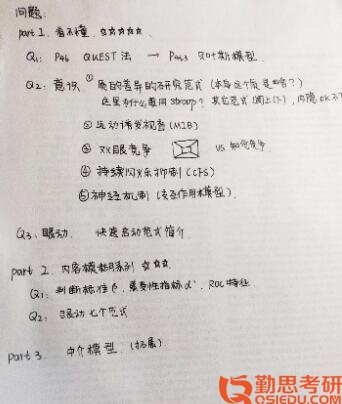 问题:
part 1. 看不懂. ☆☆☆☆☆
Q1: P46 QUEST法 → P463 贝叶斯模型.
Q2: 意识 ① 质的差异的研究范式 (本身这个质是啥?)
这里为什么要用 stroop? 其它范式
② 运动诱发视盲 (MIB)
③ 双眼竞争 vs 知觉竞争
④ 持续闪烁抑制 (CFS)
⑤ 神经机制 (交互作用模型).
Q3. 眼动. 快速启动范式简介
part 2. 内容模糊系列 ☆☆☆.
Q1: 判断标准 β, 敏感性指标 d', ROC特征
Q2: 眼动七个范式
part 3. 中介模型. (拓展)
勤思考研
QSIEDU.COM